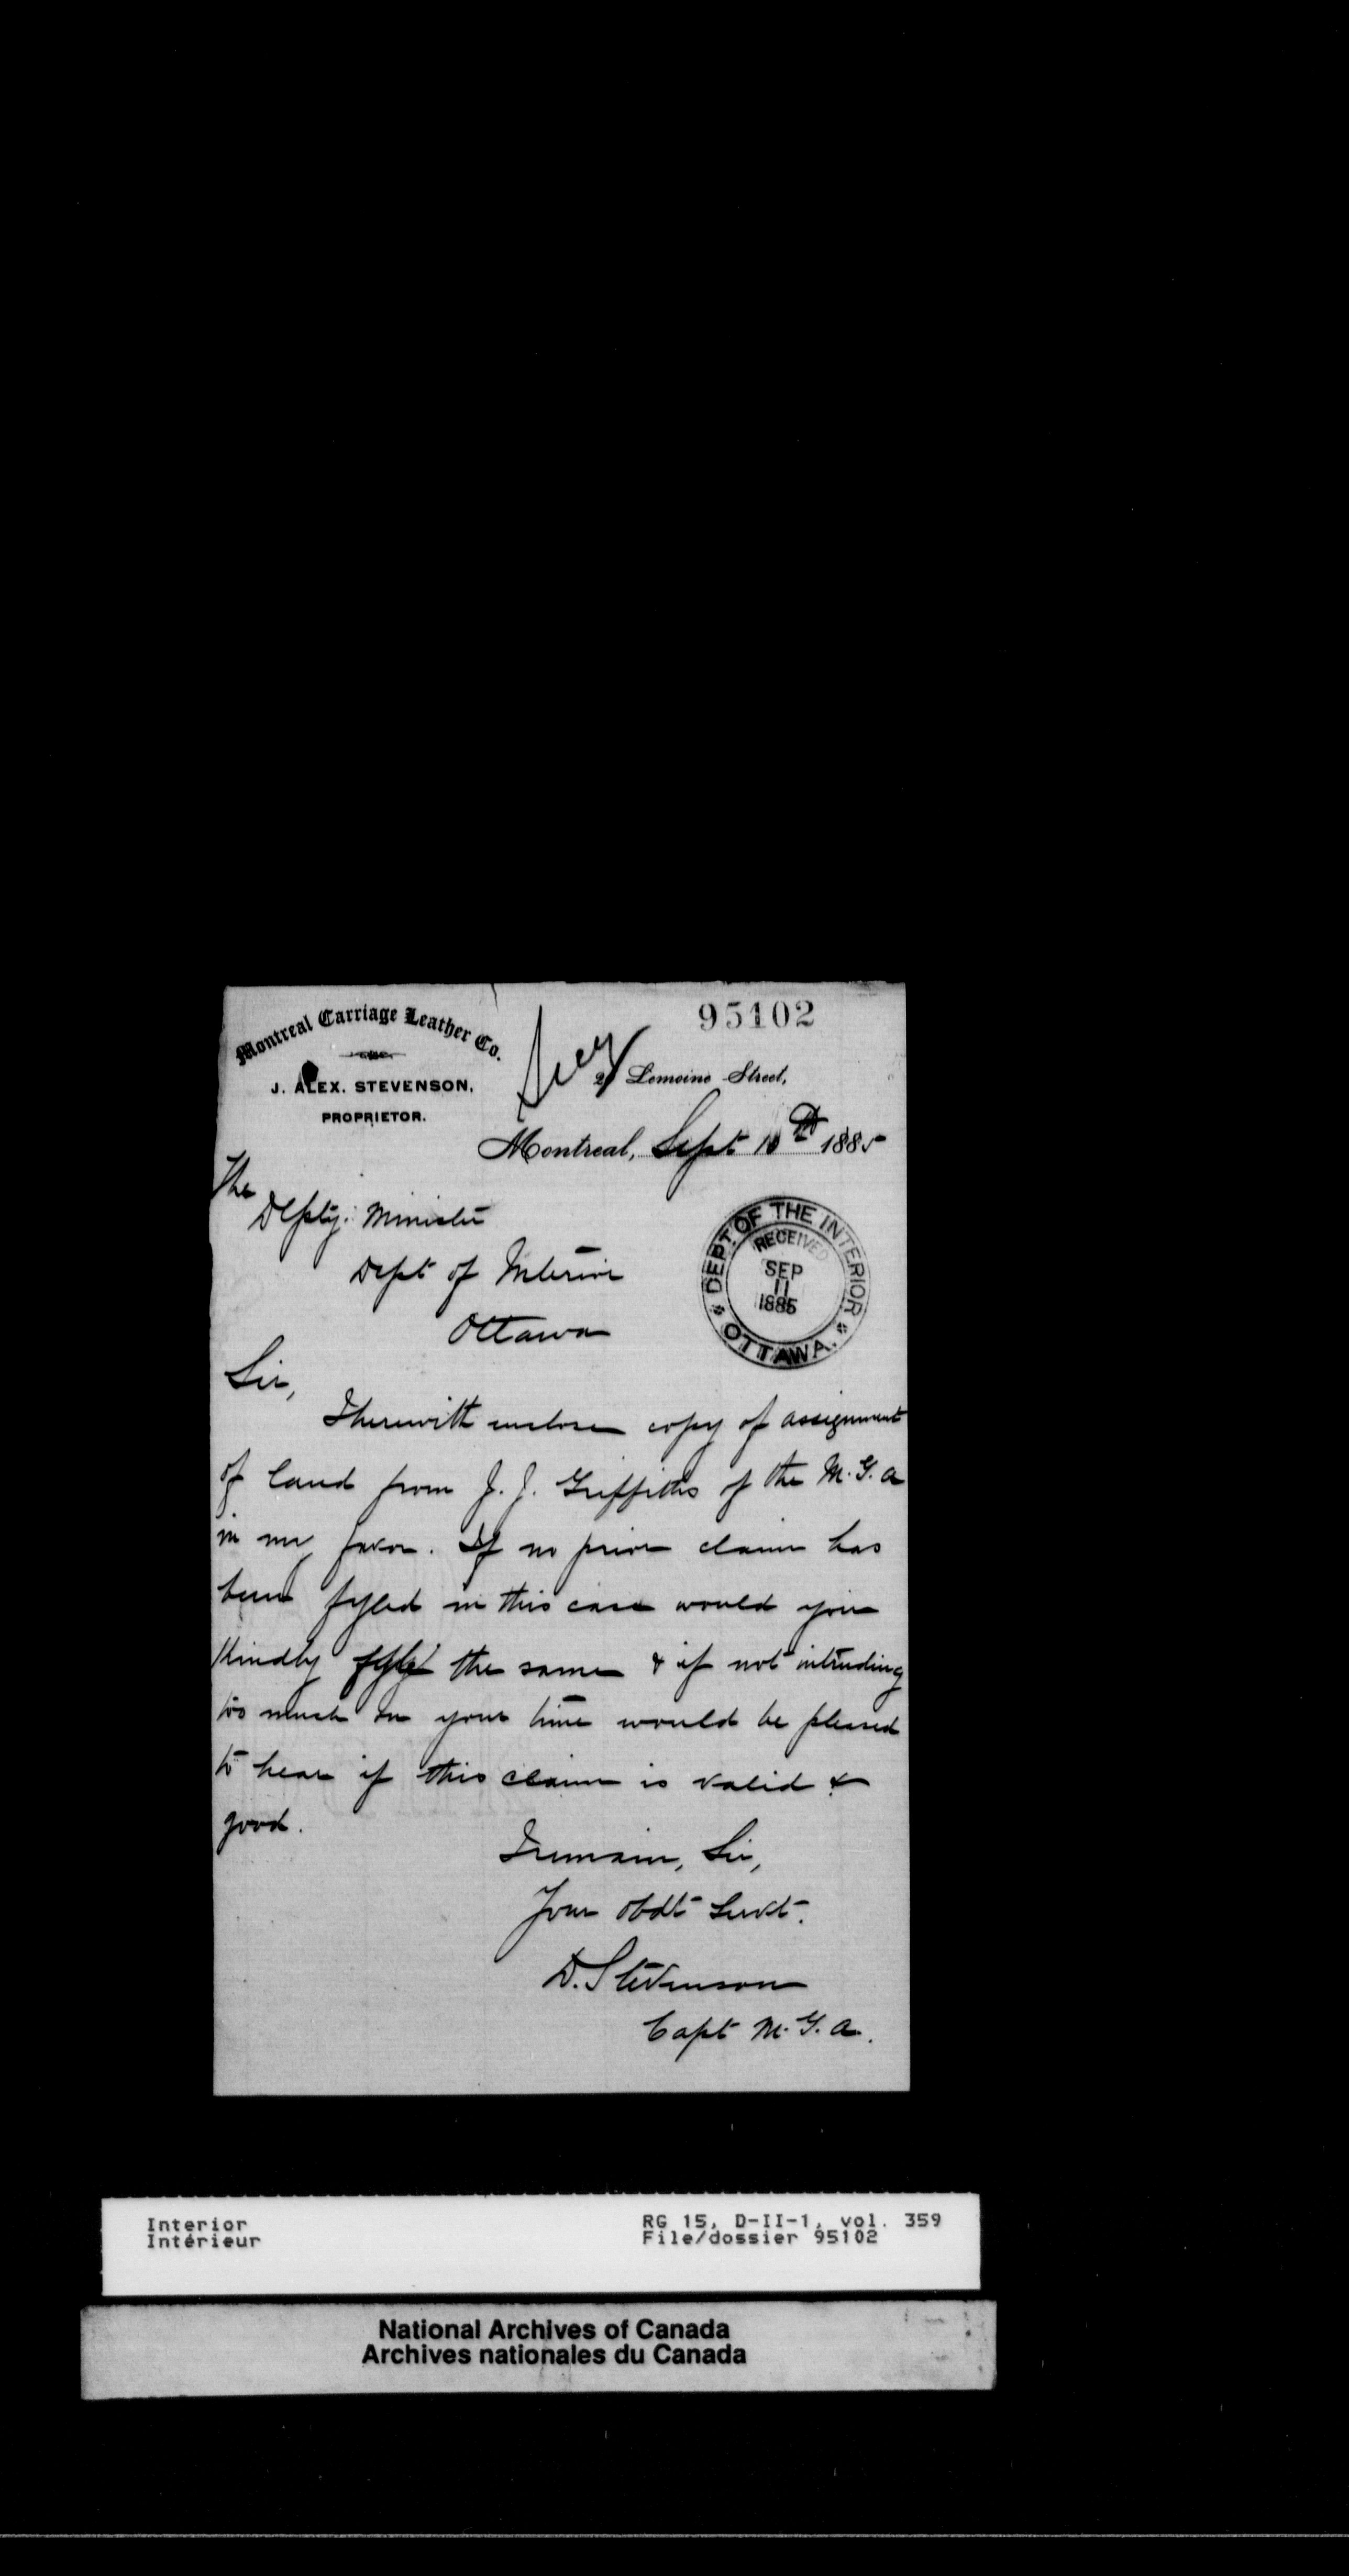 Montreal Carriage Leather Co.
J. ALEX. STEVENSON,
PROPRIETOR.
95102
Lemoine Street,
Montreal, Sept 10th 1885
The
Depty. Minister
Dept of Interior
Ottawa
DEPT. OF THE INTERIOR
RECEIVED
SEP
11
1885
OTTAWA.
Sir,
I herewith enclose copy of assignment
of land from J. J. Griffiths of the M. G. A
in my favor. If no prior claim has
been fyled in this case would you
kindly fyle the same & if not intruding
too much on your time would be pleased
to hear if this claim is valid &
good.
I remain, Sir,
Your obdt Servt.
D. Stevenson
Capt M. G. A.
Interior
Intérieur
RG 15, D-II-1, vol. 359
File/dossier 95102
National Archives of Canada
Archives nationales du Canada